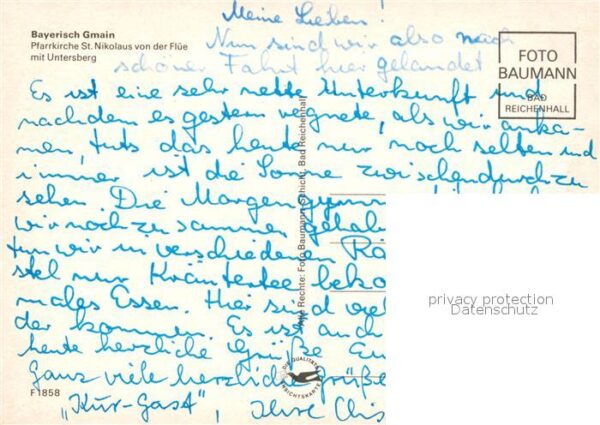 Bayerisch Gmain
Pfarrkirche St. Nikolaus von der Flüe
mit Untersberg
FOTO
BAUMANN
BAD
REICHENHALL
Meine Lieben!
Nun sind wir also nach
schöner Fahrt hier gelandet
Es ist eine sehr nette Unterkunft und
nachdem es gestern regnete, als wir anka-
men, tuts das heute nur noch selten und
immer ist die Sonne zwischendurch zu
sehen. Die Morgengymn
wir noch zusammen gehal
tun wir in verschiedenen Rä
stel nur Kräutertee beko
males Essen. Hier sind viel
der kommen. Es ist auch
heute herzliche Grüße Eu
Ganz viele herzliche Grüße
"Kur-Gast", Ihre Chris
Alle Rechte: Foto Baumann-Schicht, Bad Reichenhall
DIE QUALITÄTS
ANSICHTSKARTE
F1858
privacy protection
Datenschutz